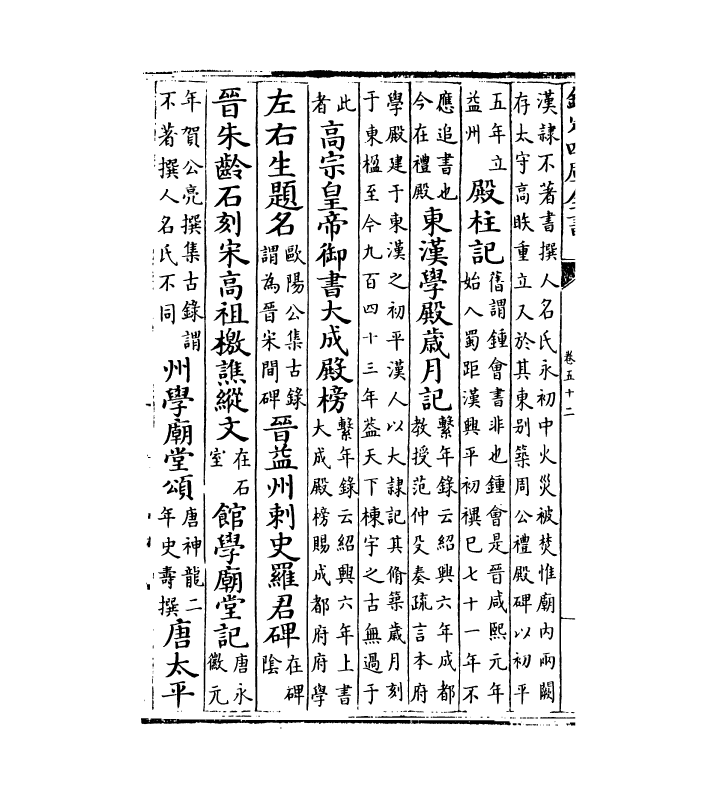 欽定四庫全書
卷五十二
漢隸不著書撰人名氏永初中火災被焚惟廟内兩闕
存太守高眹重立又於其東别築周公禮殿碑以初平
五年立
益州
殿柱記
舊謂鍾會書非也鍾會是晉咸熙元年
始入蜀距漢興平初禩已七十一年不
應追書也
今在禮殿
東漢學殿歲月記
繫年錄云紹興六年成都
教授范仲殳奏疏言本府
學殿建于東漢之初平漢人以大隸記其脩築歲月刻
于東楹至今九百四十三年葢天下棟宇之古無過于
此
者
高宗皇帝御書大成殿榜
繫年錄云紹興六年上書
大成殿榜賜成都府府學
左右生題名
歐陽公集古錄
謂為晉宋間碑
晉益州刺史羅君碑
在碑
陰
晉朱齡石刻宋高祖檄譙縱文
在石
室
館學廟堂記
唐永
徽元
年賀公亮撰集古錄謂
不著撰人名氏不同
州學廟堂頌
唐神龍二
年史壽撰
唐太平